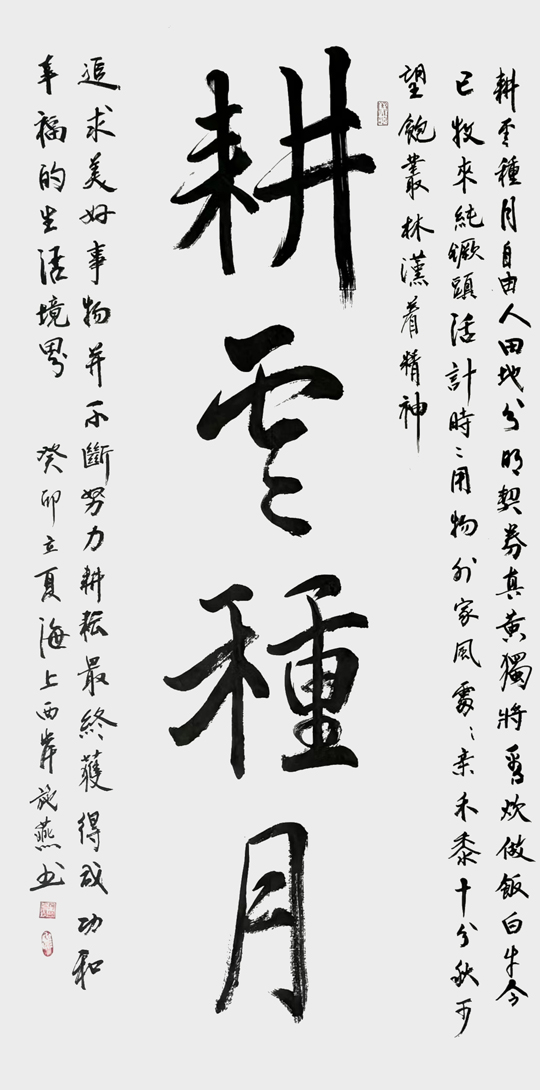 耕雲種月自由人田地分明契券真黃獨將舊炊做飯白牛今
已牧來純钁頭活計時〻用物外家風處〻亲禾黍十分秋可
望飽叢林漢着精神
耕雲種月
追求美好事物并不斷努力耕耘最終獲得成功和
幸福的生活境界 癸卯立夏海上西岸施燕书